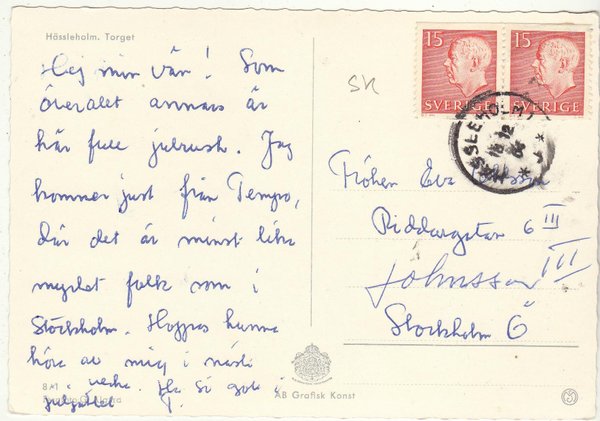 Hässleholm. Torget
Hej min vän! Som
överallt annars är
här full julrush. Jag
kommer just från Tempo,
där det är minst lika
mycket folk som i
Stockholm. Hoppas kunna
höra av mig i nästa
vecka. Ha så gott i
julgöttet
8/41
SK
15 15
SVERIGE SVERIGE
HÄSSLEHOLM 1
Fröken Eva
Riddargatan 6 III
Johnsson III
Stockholm Ö
AB Grafisk Konst